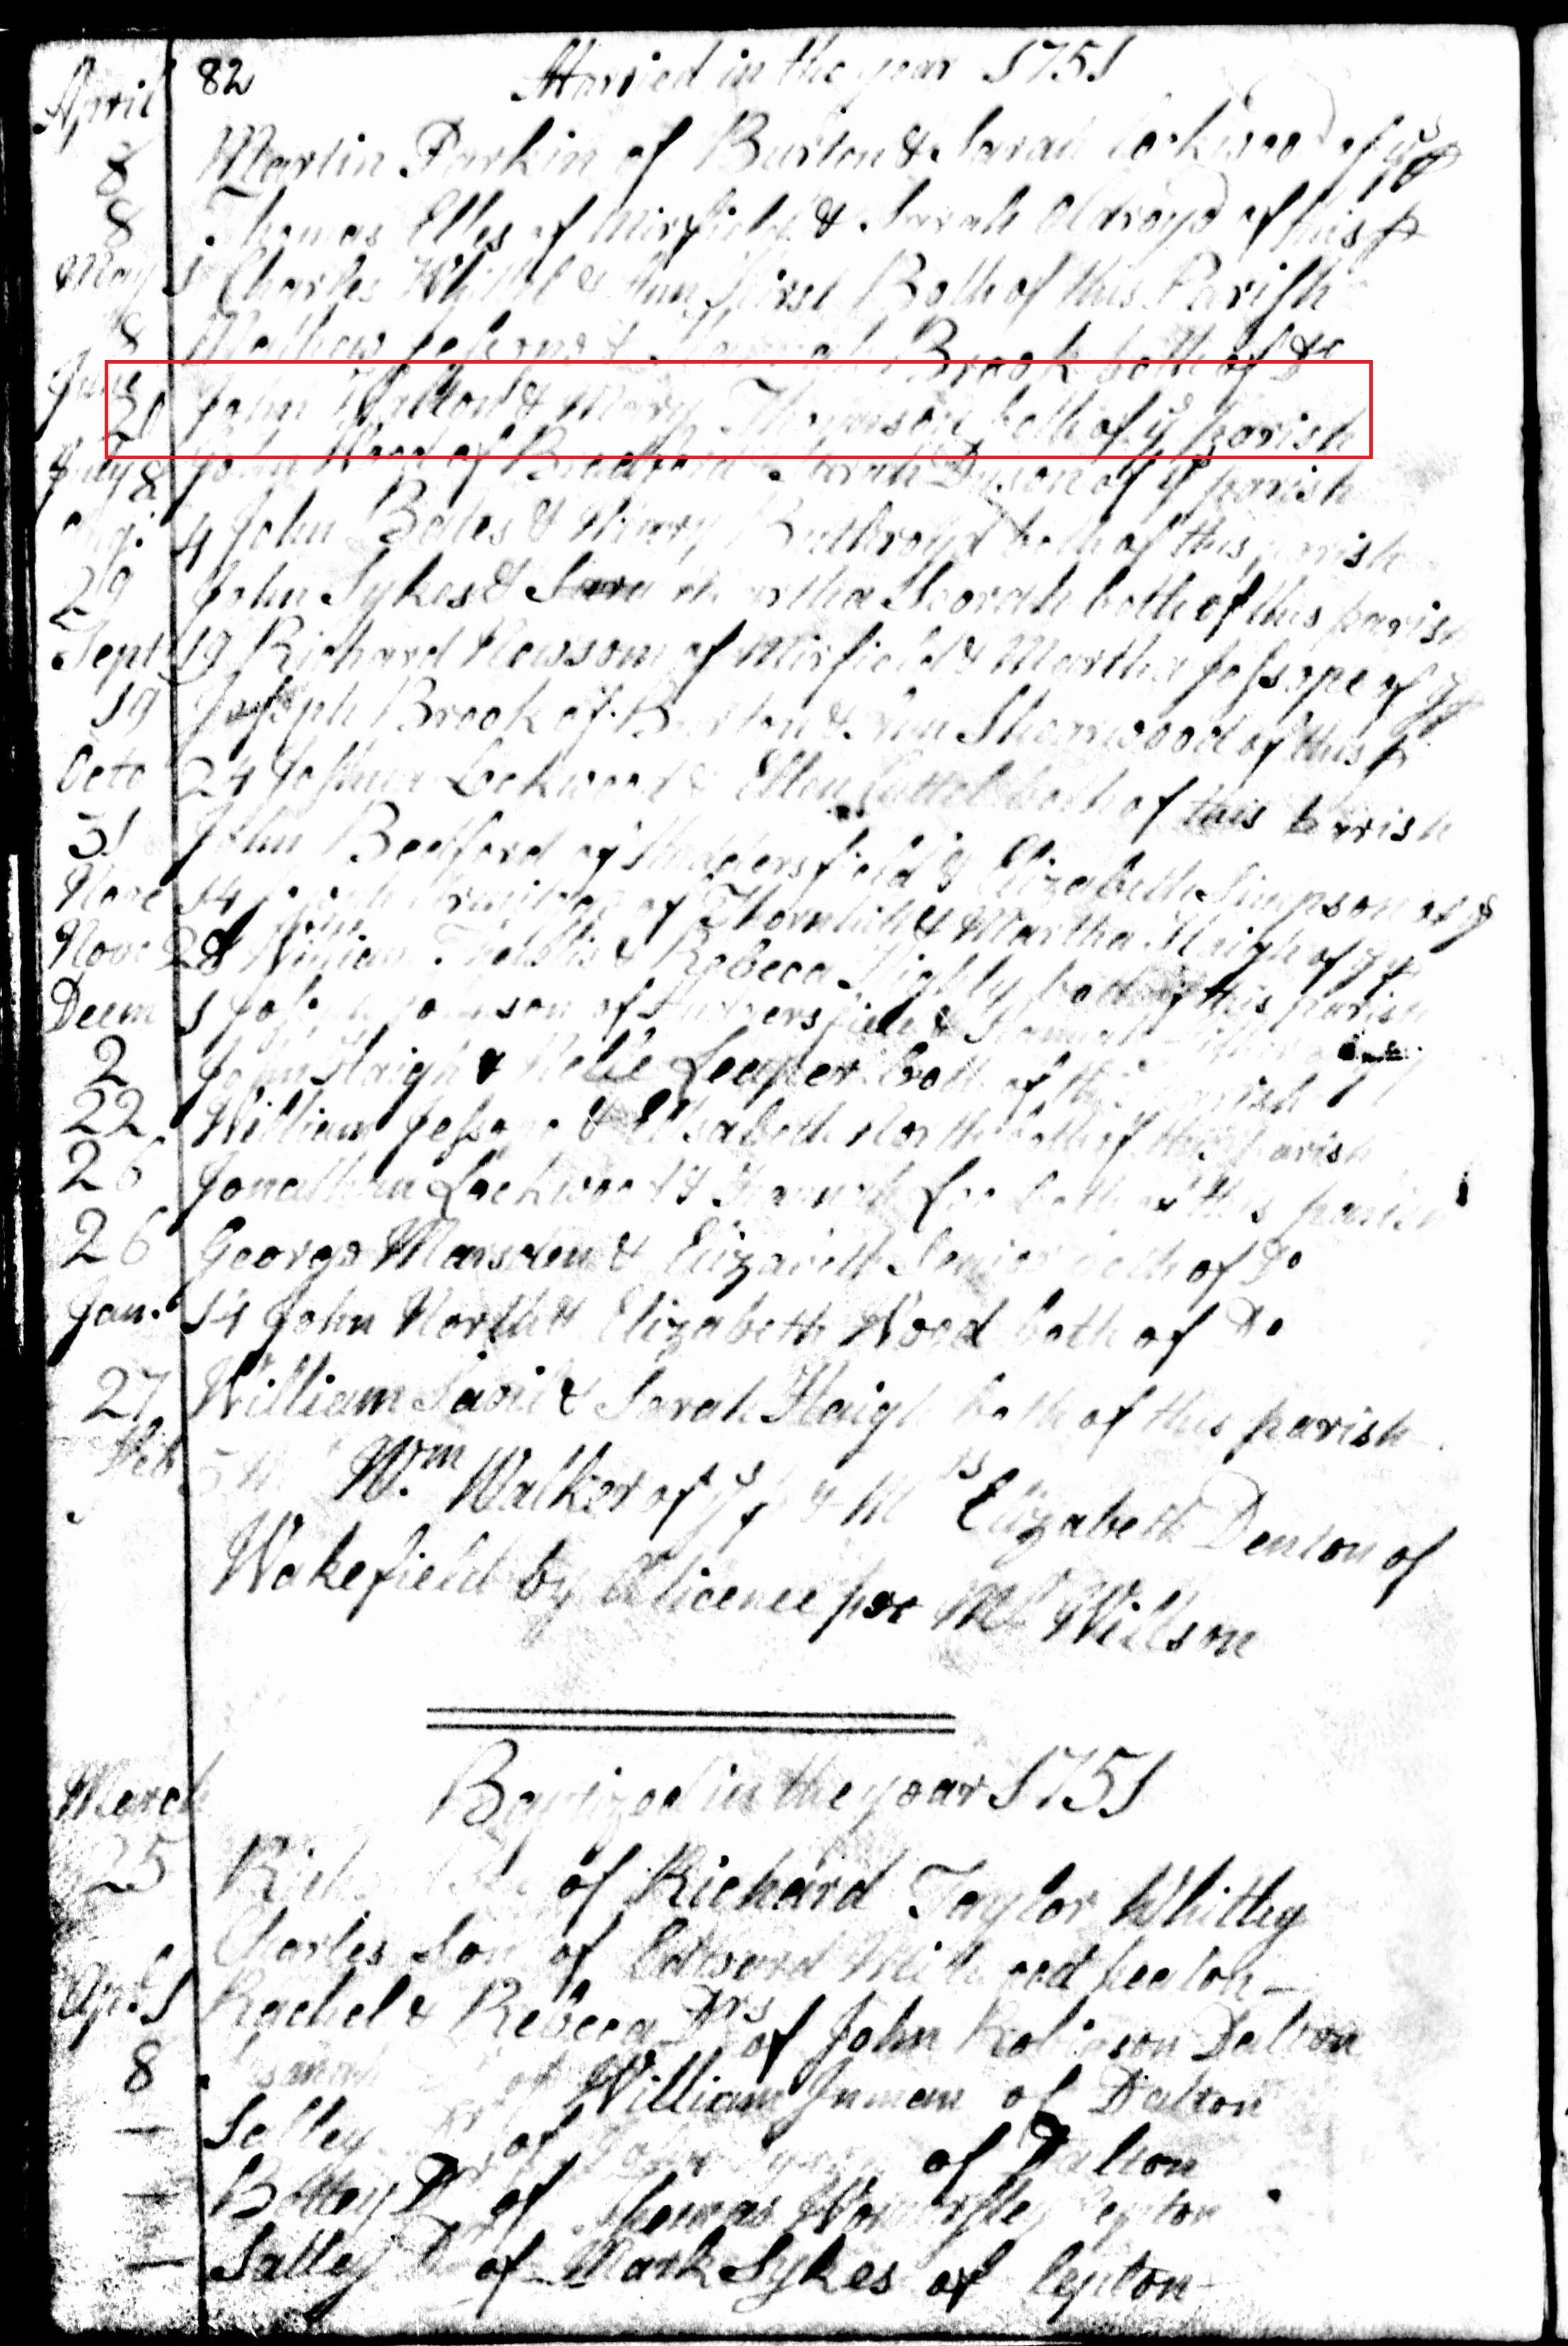 82 Married in the year 1751
April
8 Martin Parkin of Burton & Sarah Lockwood of ys p
8 Thomas Elles of Mirfield & Sarah Oldroyd of this p
May 1 Charles & Ann Hirst Both of this Parish
8 Mathew Jessop & Hannah Brook both of Do
June 20 John & Mary Thomson both of ys parish
July 8 John Wood of Bradford Sarah Dyson of ys parish
Aug: 4 John Bates & Mary Buthroyd both of this parish
29 John Sykes & Martha Scorah both of this parish
Sept 19 Richard Newsom of Mirfield & Martha Jessope of ys p
19 Joseph Brook of Burton & Ann Sherwood of this p
Octo 24 Joshua Lockwood & Ellen both of this parish
31 John Bedford of Huddersfield & Elizabeth Simpson of ys
Nove 14 Armitage of Thornhill & Martha Haigh of ys p
Nove 28 William & Rebeca Highly both of this parish
Decem 1 Joseph Johnson of Huddersfield &
2 John Haigh & Leaper both of this parish
22 William Jessope & Elisabeth North both of this parish
26 Jonathan Lockwood & Hannah Lee both of this parish
26 George Marsden & Elizabeth Senior both of Do
Jan. 14 John North & Elizabeth Wood both of Do
27 William Savil & Sarah Haigh both of this parish
Feb 5 Wm Walker of ys p & Mrs Elizabeth Denton of
Wakefield by License per Mr Willson
Baptized in the year 1751
March
25 of Richard Taylor Whitley
Charles Son of Edward Heaton
Apr. 1 Rachel & Rebeca Drs of John Robinson Dalton
8 of William Inman of Dalton
— Salley Dr of John of Dalton
— Bettey Dr of Thomas Lepton
— Salley Dr of Mark Sykes of Lepton